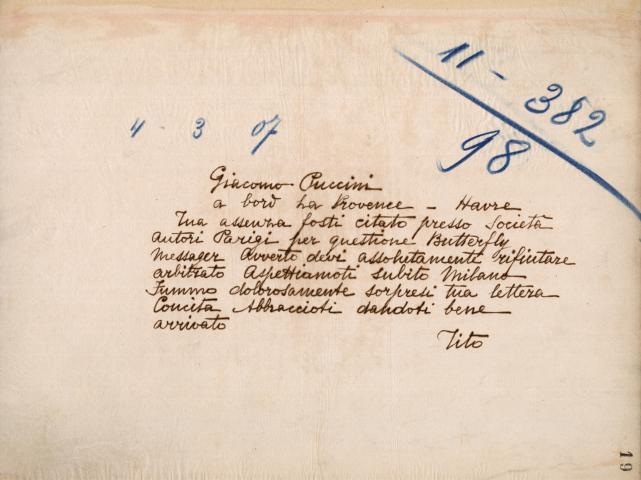 11 - 382
98
4 3 07
Giacomo Puccini
a bord La Provence - Havre
Tua assenza fosti citato presso Società
Autori Parigi per questione Butterfly
Messager Avverto devi assolutamente rifiutare
arbitrato Aspettiamoti subito Milano
Fummo dolorosamente sorpresi tua lettera
Concita Abbraccioti dandoti bene
arrivato
Tito
19